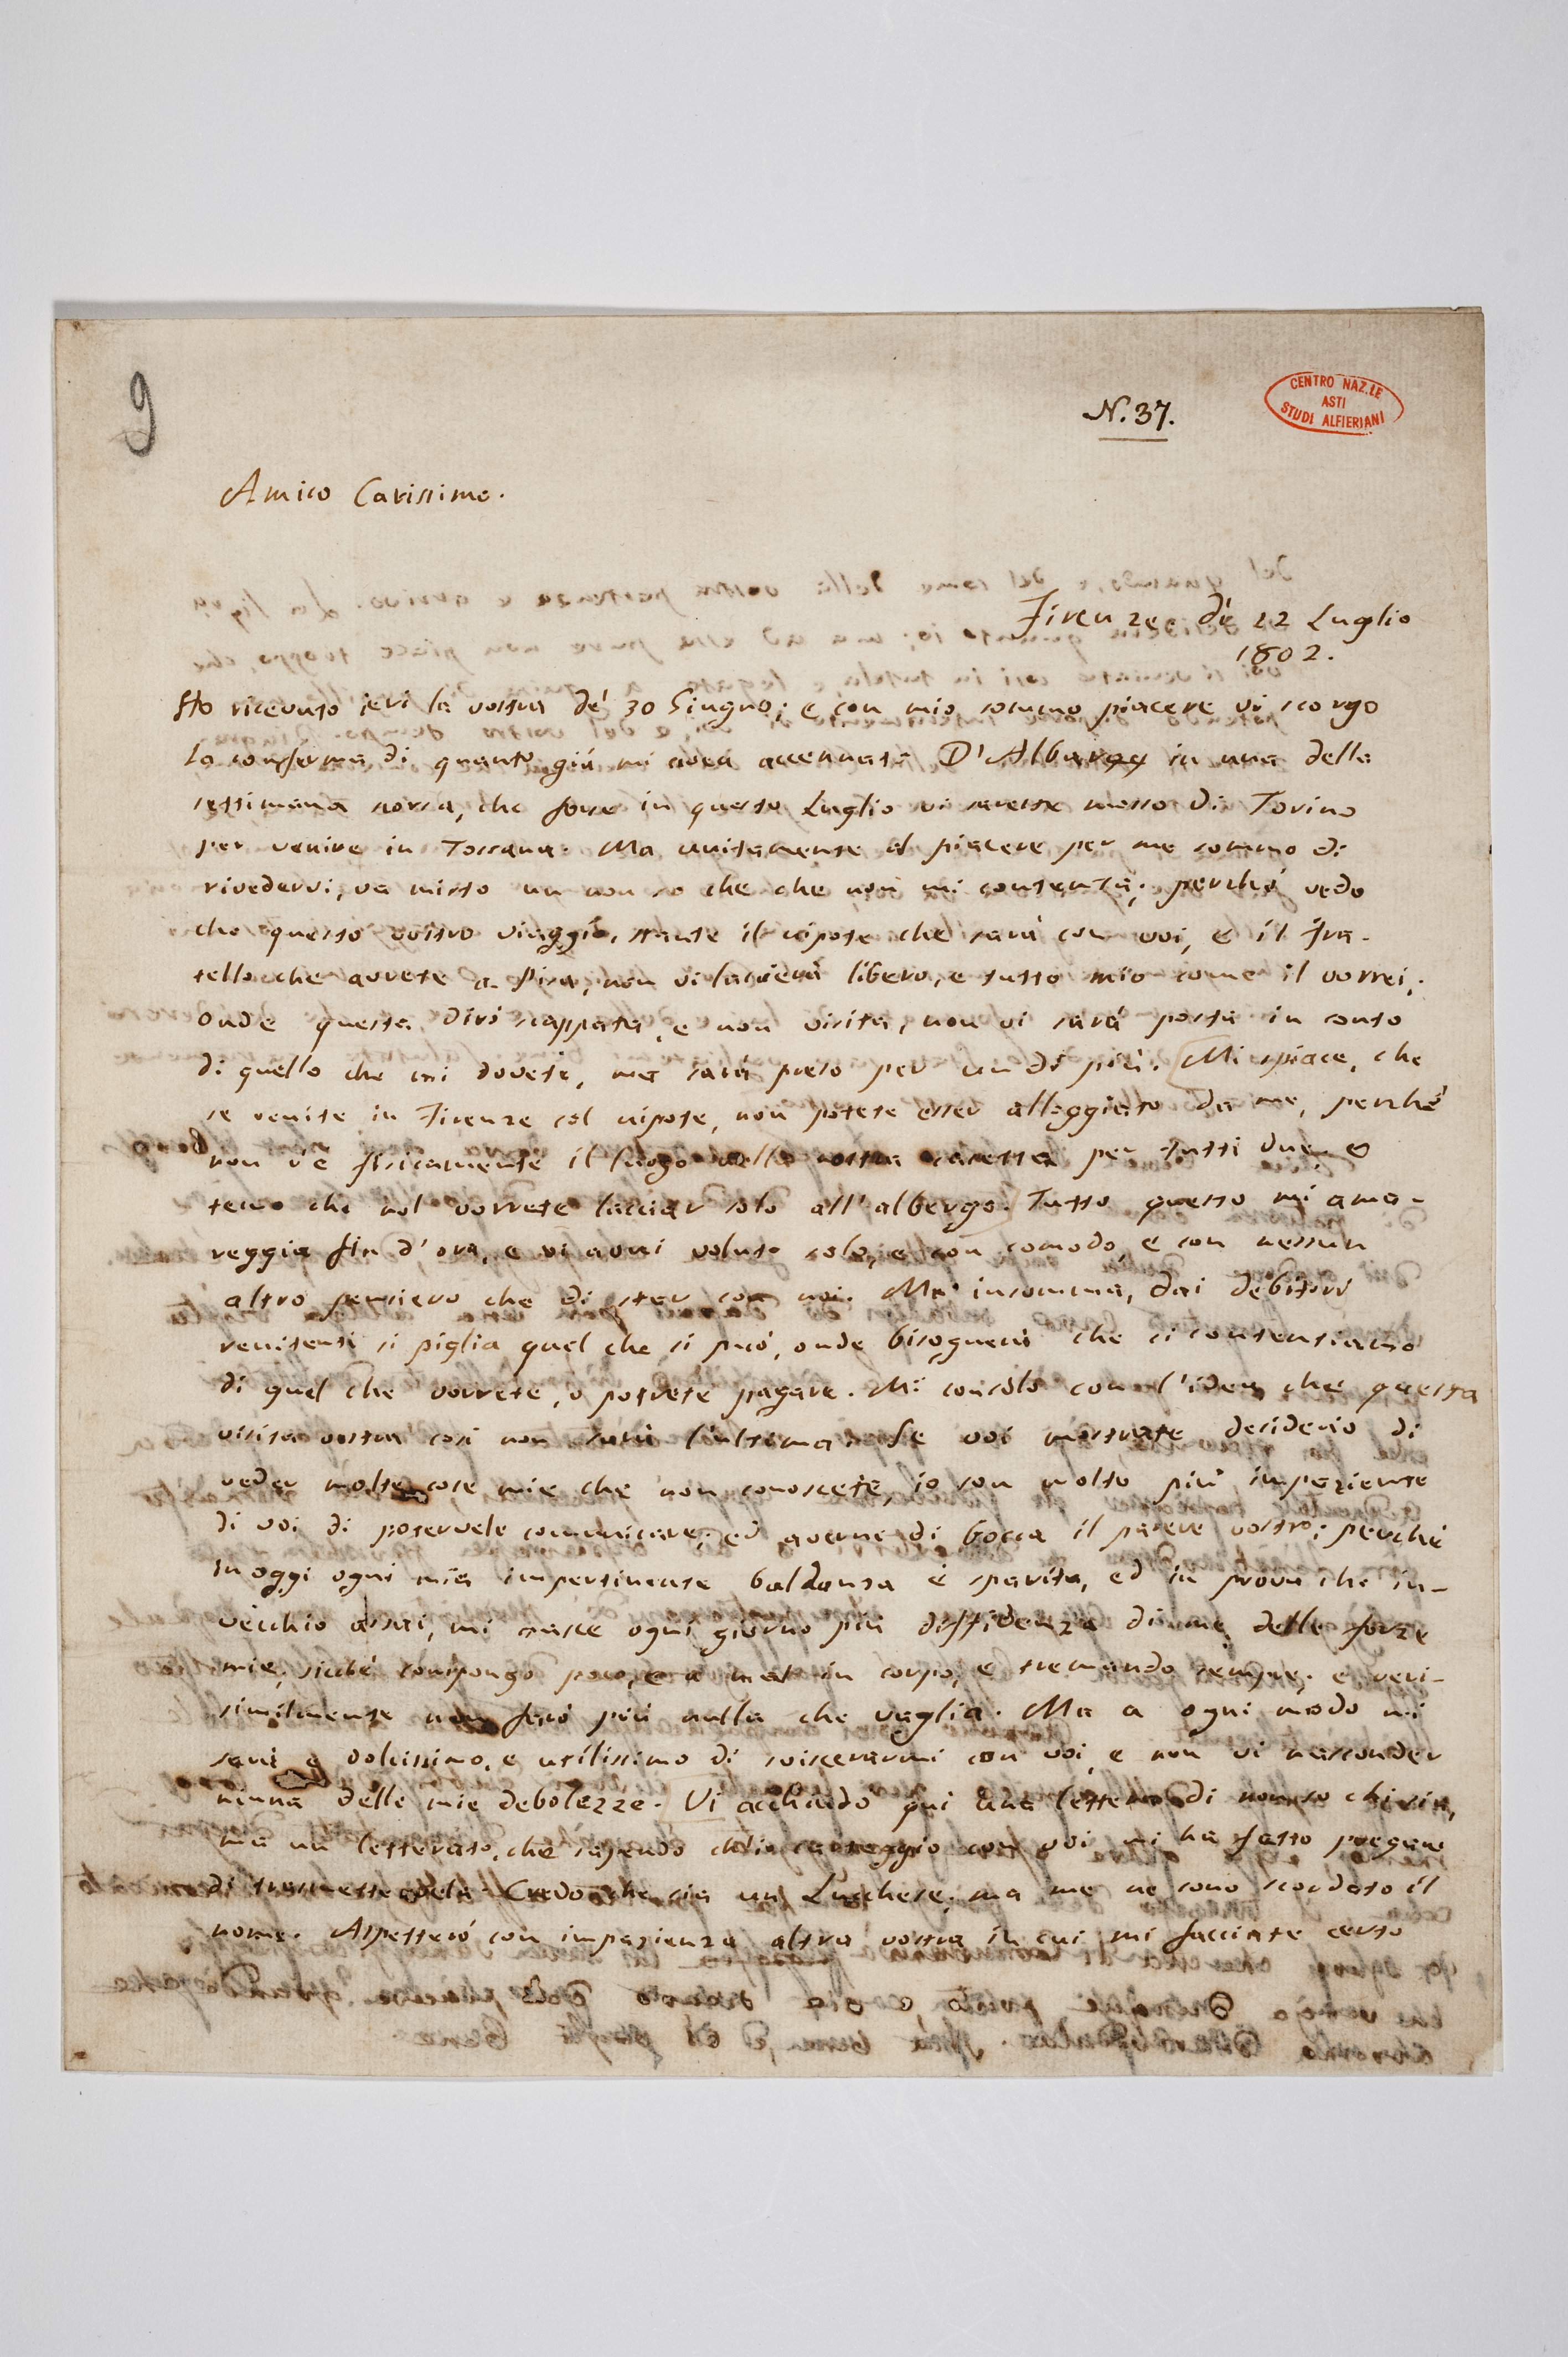 9
N. 37.
CENTRO NAZ.LE
ASTI
STUDI ALFIERIANI
Amico Carissimo.
Firenze, dì 12 Luglio
1802.
Ho ricevuto ieri la vostra de' 30 Giugno; e con mio sommo piacere vi scorgo
la conferma di quanto già mi avea accennato D'Albarey in una della
settimana scorsa, che forse in questo Luglio vi sareste mosso di Torino
per venire in Toscana. Ma unitamente al piacere per me sommo di
rivedervi, va misto un non so che che non mi contenta; perchè vedo
che questo vostro viaggio, stante il nipote che sarà con voi, e il Fra-
tello che avrete a Pisa, non vi lascierà libero, e tutto mio come il vorrei;
onde questa, dirò scappata, e non visita, non vi sarà posta in conto
di quello che mi dovete, ma sarà preso per un di più. Mi spiace, che
se venite in Firenze col nipote, non potete esser alloggiato da me, perchè
non v'è fisicamente il luogo nella nostra casetta per tutti due, e
temo che nol vorrete lasciar solo all'albergo. Tutto questo mi ama-
reggia fin d'ora, e vi avrei voluto solo, e con comodo, e con nessun
altro pensiero che di star con noi. Ma insomma, dai debitori
renitenti si piglia quel che si può, onde bisognerà che ci contentiamo
di quel che vorrete, o potrete pagare. Mi consolo con l'idea che questa
visita vostra così non sarà l'ultima. Se voi mostrate desiderio di
veder molte cose mie che non conoscete, io son molto più impaziente
di voi di potervele comunicare, ed averne di bocca il parere vostro; perchè
in oggi ogni mia impertinente baldanza è sparita, ed in prova che in-
vecchio assai, mi nasce ogni giorno più diffidenza di me, e delle forze
mie; sicchè compongo poco, e a mal in corpo, e tremando sempre; e veri-
similmente non farò più nulla che vaglia. Ma a ogni modo mi
sarà e dolcissimo, e utilissimo di sviscerarmi con voi, e non vi nasconder
niuna delle mie debolezze. Vi acchiudo qui una lettera di non so chi sia,
ma un letterato, che sapendo ch'io carteggio con voi mi ha fatto pregare
di trasmettervela. Credo che sia un Lucchese, ma me ne sono scordato il
nome. Aspetterò con impazienza altra vostra in cui mi facciate certo